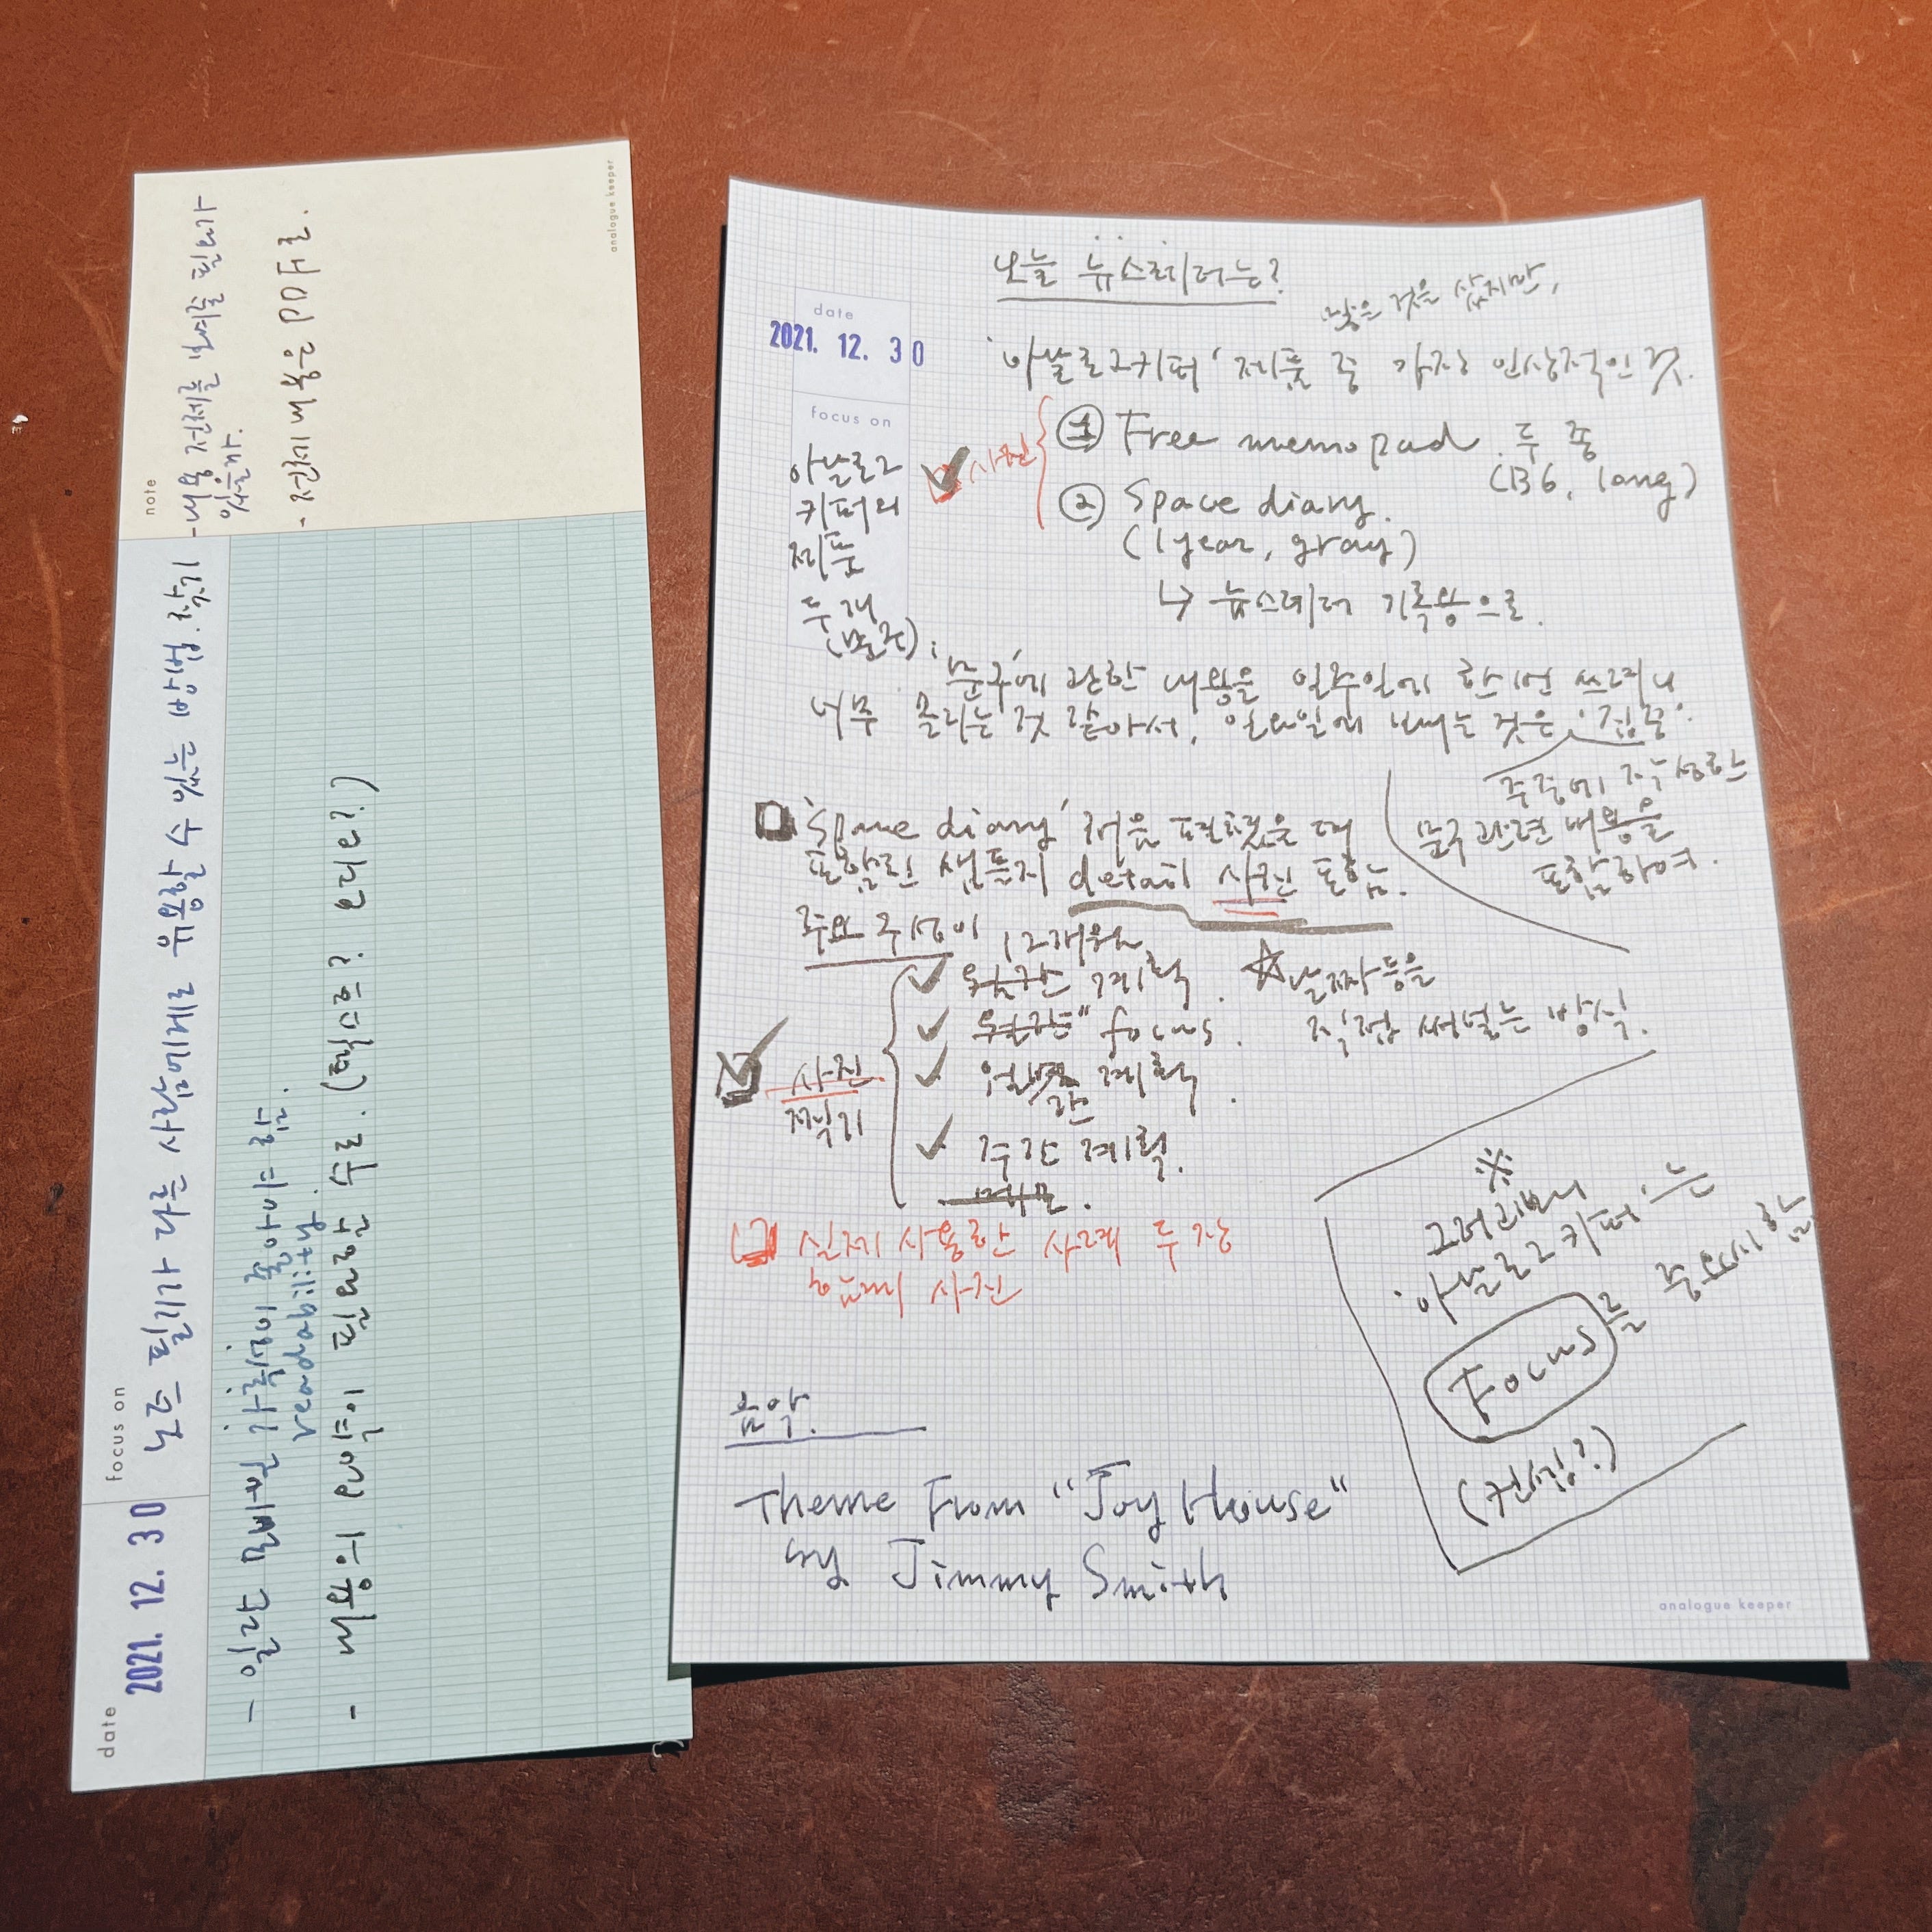 date
2021. 12. 30
focus on
노트 필기가 다른 사람에게도 유용할 수 있는 방법 찾기
- 일단 글씨는 가독성이 좋아야 함.
readability
- 내용의 요약이 필요할 수도. (팩트? 원리?)
note
- 내용 전체를 보여줄 필요가
있을까.
- 전체 내용은 PDF로.
analogue keeper
오늘 뉴스레터는?
많은 것을 샀지만,
date
2021. 12. 30
'아날로그키퍼' 제품 중 가장 인상적인 것.
focus on
아날로그
키퍼의
제품
두 개
(문구)
사진
① Free memopad. 두 종
(B6, long)
② Space diary.
(1year, gray)
↳ 뉴스레터 기록용으로.
'문구'에 관한 내용을 일주일에 한 번 쓰려니
너무 몰리는 것 같아서, 일요일에 보내는 것은 '집중'.
주중에
문구 관련 내용을
포함하여.
'Space diary' 처음 펼쳤을 때
포함된 샘플지 detail 사진 포함.
주요 구성이
12개월
계획.
" focus.
월간 계획.
주간 계획.
메모.
사진
찍기
☆ 날짜 등을
직접 써넣는 방식.
실제 사용한 사례 두 장
예제 사진
※
그러고보니
아날로그 키퍼.는
Focus를 중요시 함
(컨셉?)
음악.
Theme From "Joy House"
by Jimmy Smith
analogue keeper